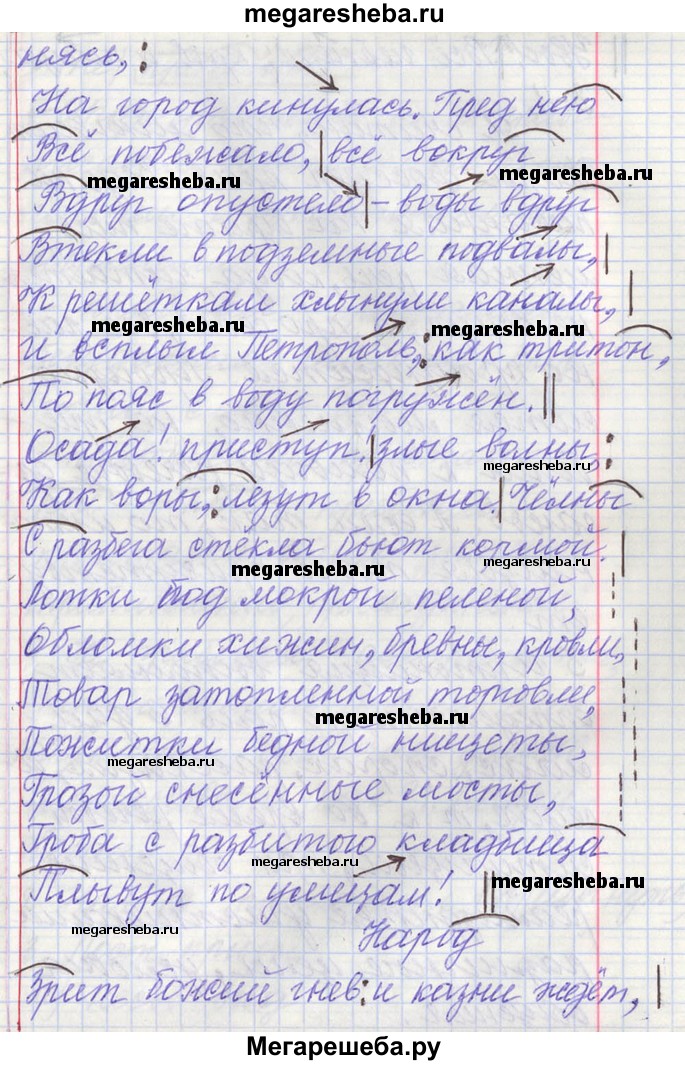 megaresheba.ru
нясь,
На город кинулась. Пред нею
Всё побежало, | всё вокруг
megaresheba.ru
Вдруг опустело | – воды вдруг
megaresheba.ru
Втекли в подземные подвалы, |
К решёткам хлынули каналы, |
megaresheba.ru
megaresheba.ru
И всплыл Петрополь, как тритон,
По пояс в воду погружён. ||
Осада! приступ! | злые волны,
megaresheba.ru
Как воры, лезут в окна. | Чёлны
С разбега стекла бьют кормой. |
megaresheba.ru
megaresheba.ru
Лотки под мокрой пеленой,
Обломки хижин, бревны, кровли,
Товар запопленной торговли,
megaresheba.ru
Пожитки бедной нищеты,
megaresheba.ru
Грозой снесённые мосты,
Гроба с размытого кладбища
megaresheba.ru
Плывут по улицам! ||
megaresheba.ru
megaresheba.ru
Народ
Зрит божий гнев и казни ждёт, |
Мегарешеба.ру